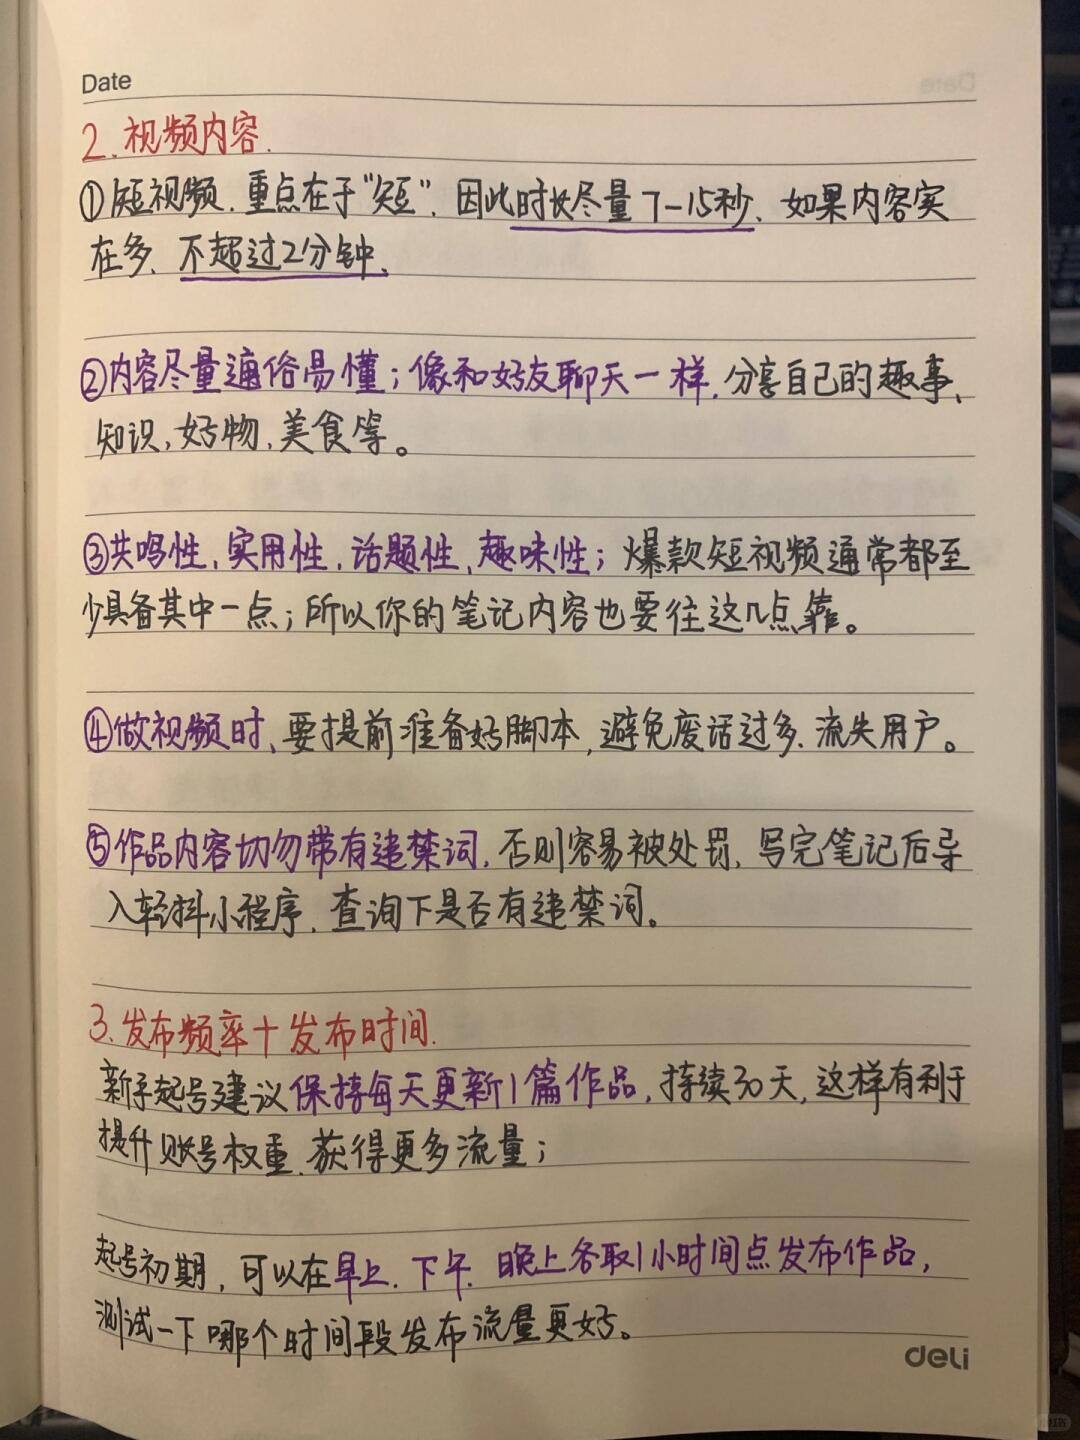 Date
2、视频内容.
①短视频.重点在于“短”.因此时长尽量7-15秒、如果内容实
在多、不超过2分钟、
②内容尽量通俗易懂;像和好友聊天一样.分享自己的趣事、
知识,好物,美食等。
③共鸣性,实用性,话题性、趣味性;爆款短视频通常都至
少具备其中一点;所以你的笔记内容也要往这几点靠。
④做视频时、要提前准备好脚本,避免废话过多.流失用户。
⑤作品内容切勿带有违禁词.否则容易被处罚,写完笔记后导
入轻抖小程序.查询下是否有违禁词。
3.发布频率+发布时间.
新手起号建议保持每天更新1篇作品,持续30天,这样有利于
提升账号权重.获得更多流量;
起号初期,可以在早上.下午.晚上各取1小时间点发布作品,
测试一下哪个时间段发布流量更好。
deli